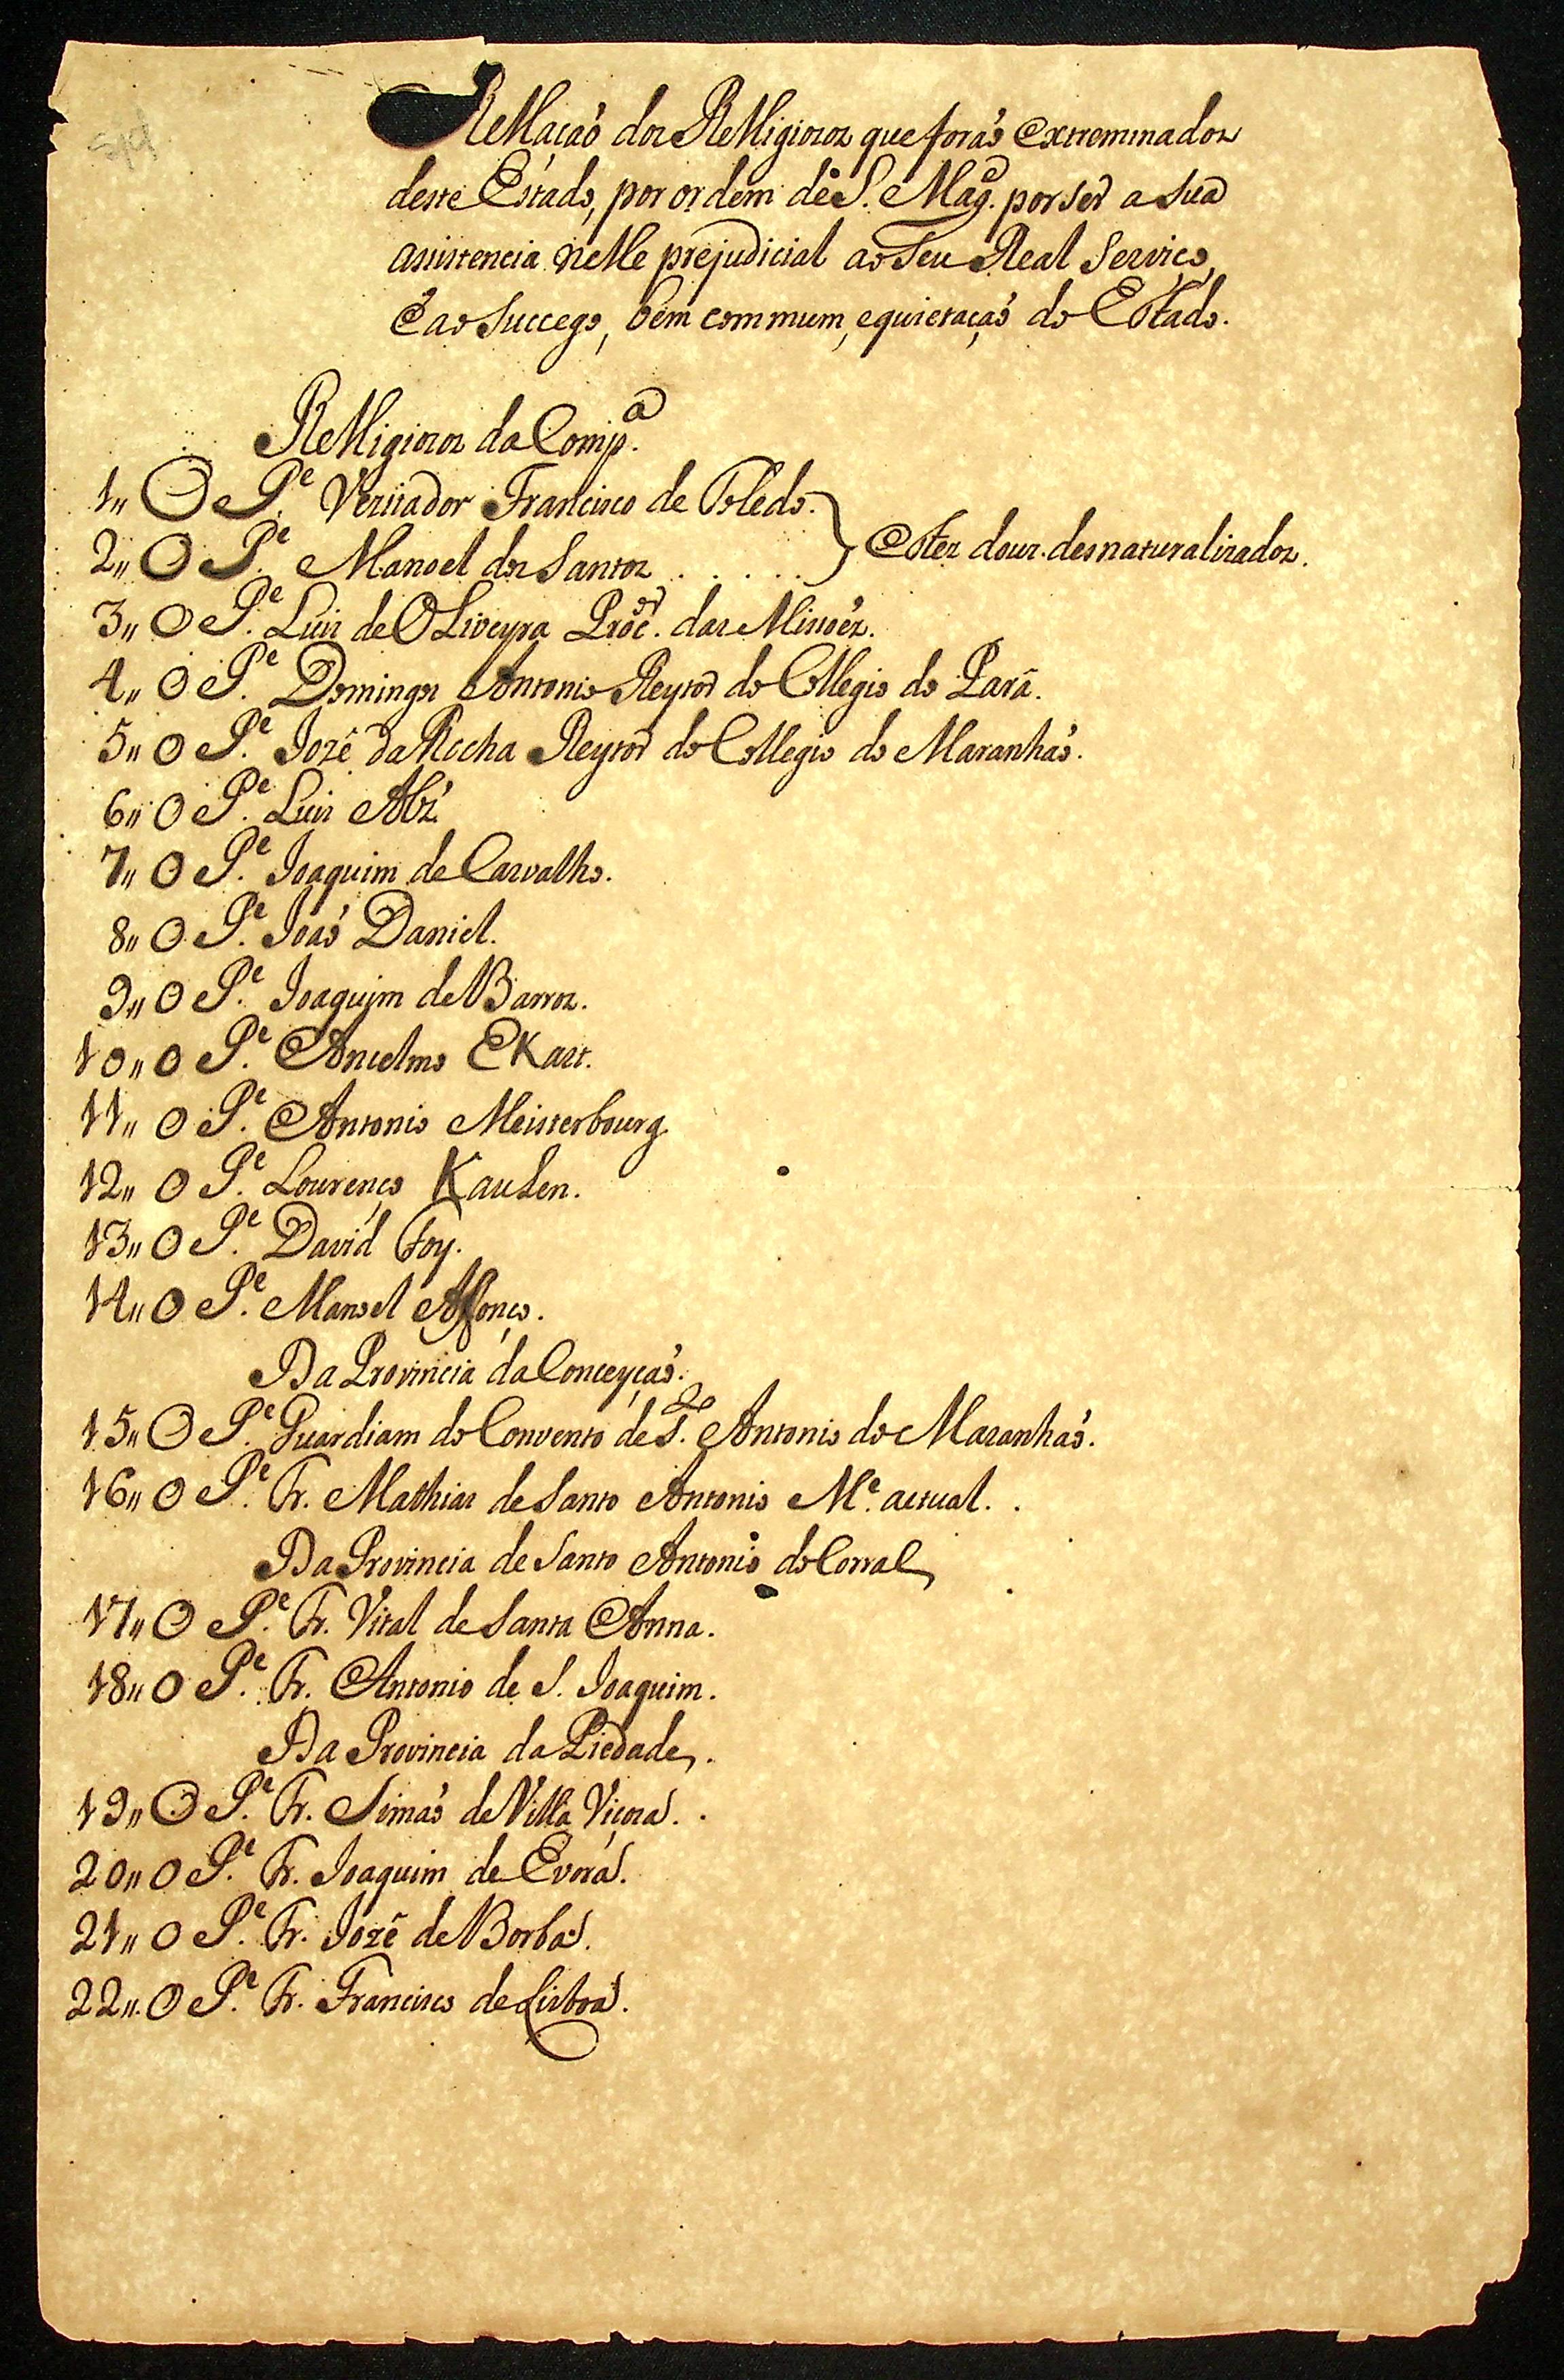 Rellação dos Relligiozos que forão Extreminados
deste Estado, por ordem de S. Magd. por ser a sua
asistencia nelle prejudicial ao Seu Real Serviço,
E ao Succego, bem commum, e quietação do Estado.
Relligiozos da Compa.
1,, O Pe. Vezitador Francisco de Toledo.
2,, O Pe. Manoel dos Santos . . . . . } Estes dous desnaturalizados.
3,, O Pe. Luis de OLiveyra Procor. das Missões.
4,, O Pe. Domingos Antonio Reytor do Collegio do Pará.
5,, O Pe. Jozê da Rocha Reytor do Collegio do Maranhão.
6,, O Pe. Luis Alz'
7,, O Pe. Joaquim de Carvalho.
8,, O Pe. João Daniel.
9,, O Pe. Joaquim de Barros.
10,, O Pe. Ancelmo EKart.
11,, O Pe. Antonio Meisterbourg
12,, O Pe. Lourenço KauLen.
13,, O Pe. David Foy.
14,, O Pe. Manoel Affonço.
Da Provincia da Conceyção.
15,, O Pe. Guardiam do Convento de Sto. Antonio do Maranhão.
16,, O Pe. Fr. Mathias de Santo Antonio Me. actual.
Da Provincia de Santo Antonio do Corral
17,, O Pe. Fr. Vital de Santa Anna.
18,, O Pe. Fr. Antonio de S. Joaquim.
Da Provincia da Piedade.
19,, O Pe. Fr. Simão de Villa Viçoza.
20,, O Pe. Fr. Joaquim de Evora.
21,, O Pe. Fr. Jozê de Borba.
22,, O Pe. Fr. Francisco de Lisboa.